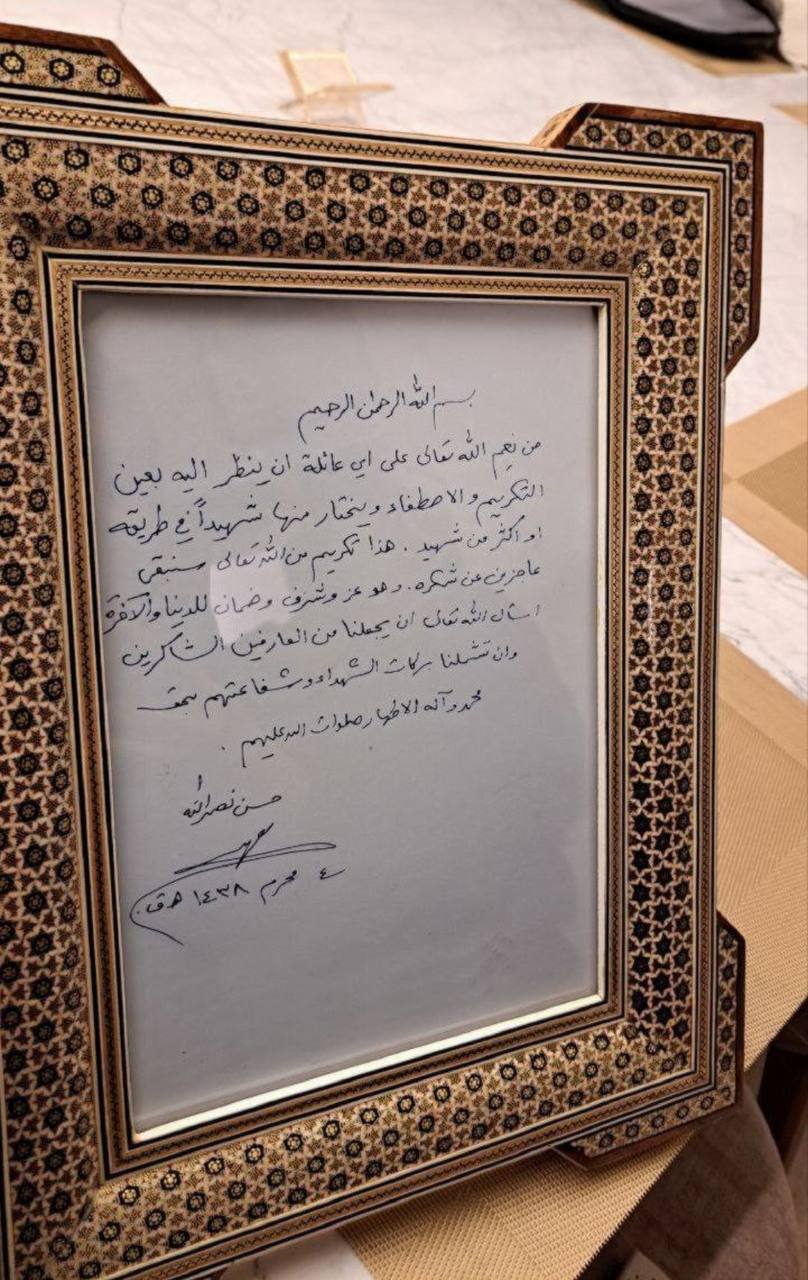 بسم الله الرحمن الرحيم
من نعم الله تعالى على اي عائلة ان ينظر اليه بعين
التكريم والاصطفاء ويختار منها شهيداً في طريقه
او اكثر من شهيد . هذا تكريم من الله تعالى سنبقى
عاجزين عن شكره . وهو عز وشرف وضمان للدنيا والآخرة
اسأل الله تعالى ان يجعلنا من العارفين الشاكرين
وان تشملنا بركات الشهداء وشفاعتهم بحق
محمد وآله الاطهار صلوات الله عليهم .
حسن نصرالله
٤ محرم ١٤٣٨ هـ ق.